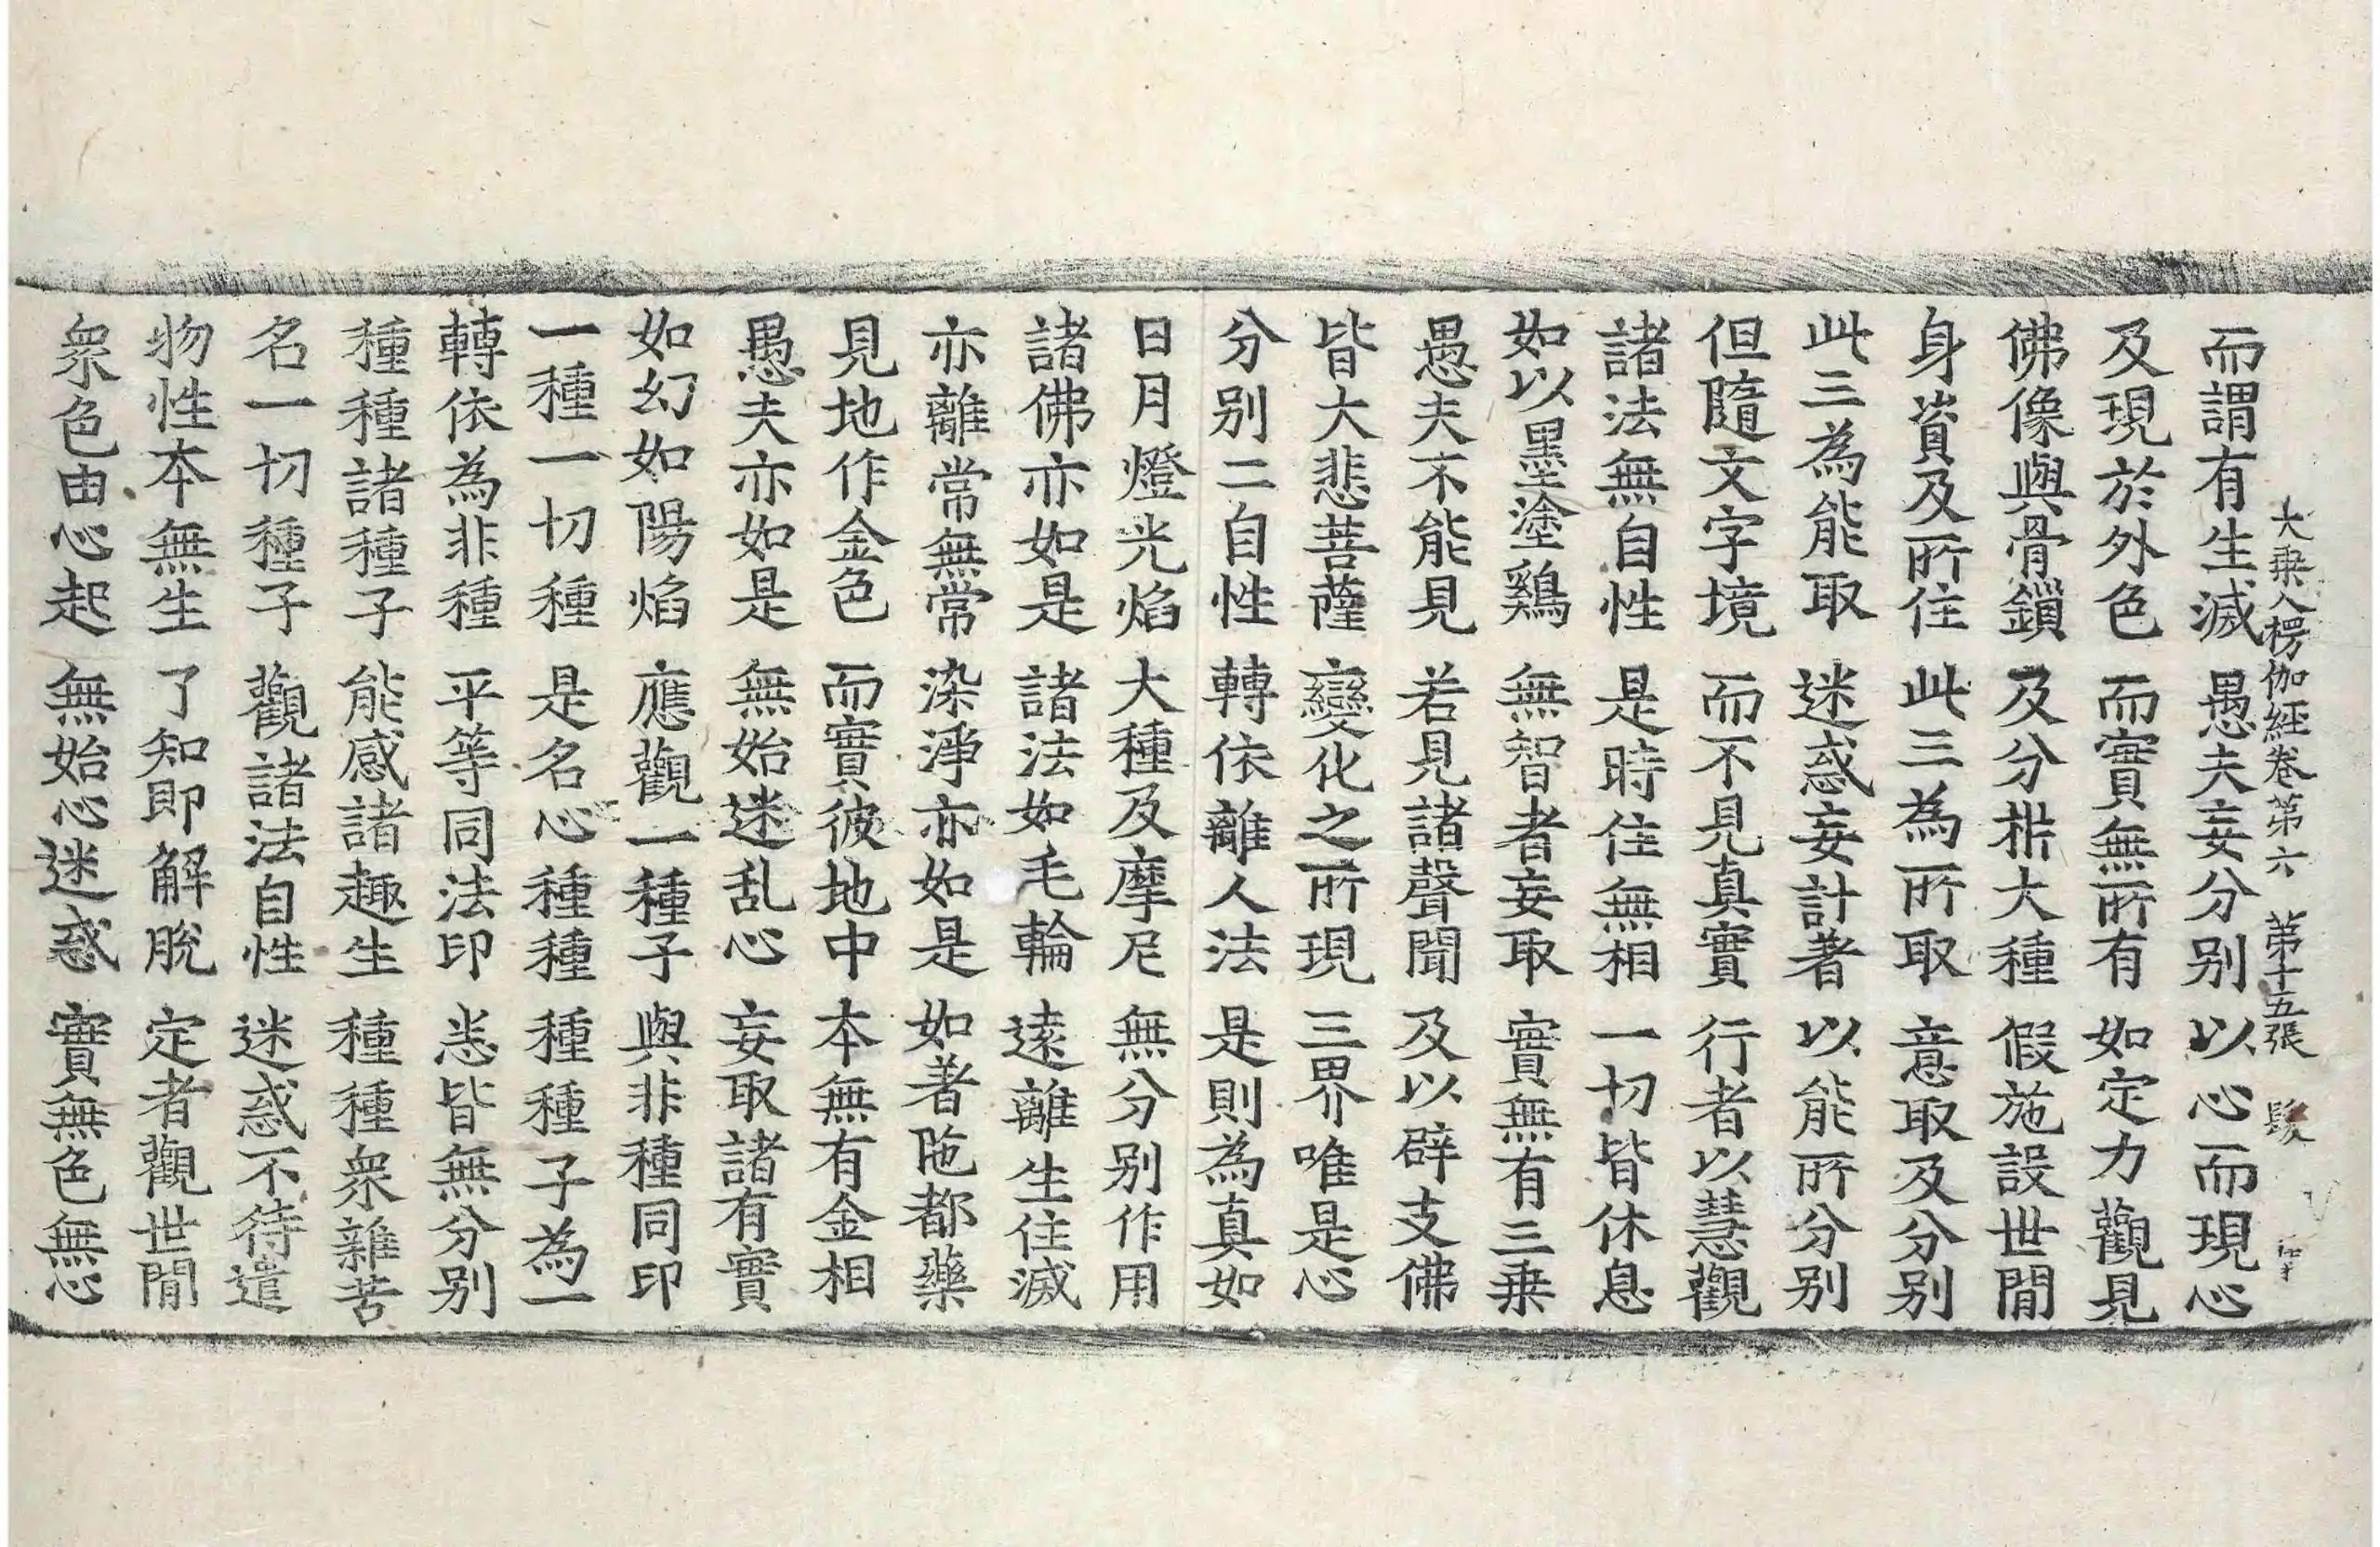 大乘入楞伽經卷第六 第十五張 髮
而謂有生滅 愚夫妄分別 以心而現心
及現於外色 而實無所有 如定力觀見
佛像與骨鎖 及分析大種 假施設世間
身資及所住 此三為所取 意取及分別
此三為能取 迷惑妄計著 以能所分別
但隨文字境 而不見真實 行者以慧觀
諸法無自性 是時住無相 一切皆休息
如以墨塗鷄 無智者妄取 實無有三乘
愚夫不能見 若見諸聲聞 及以辟支佛
皆大悲菩薩 變化之所現 三界唯是心
分別二自性 轉依離人法 是則為真如
日月燈光焰 大種及摩尼 無分別作用
諸佛亦如是 諸法如毛輪 遠離生住滅
亦離常無常 染淨亦如是 如著陁都藥
見地作金色 而實彼地中 本無有金相
愚夫亦如是 無始迷乱心 妄取諸有實
如幻如陽焰 應觀一種子 與非種同印
一種一切種 是名心種種 種種子為一
轉依為非種 平等同法印 悉皆無分別
種種諸種子 能感諸趣生 種種衆雜苦
名一切種子 觀諸法自性 迷惑不待遣
物性本無生 了知即解脫 定者觀世間
衆色由心起 無始心迷惑 實無色無心